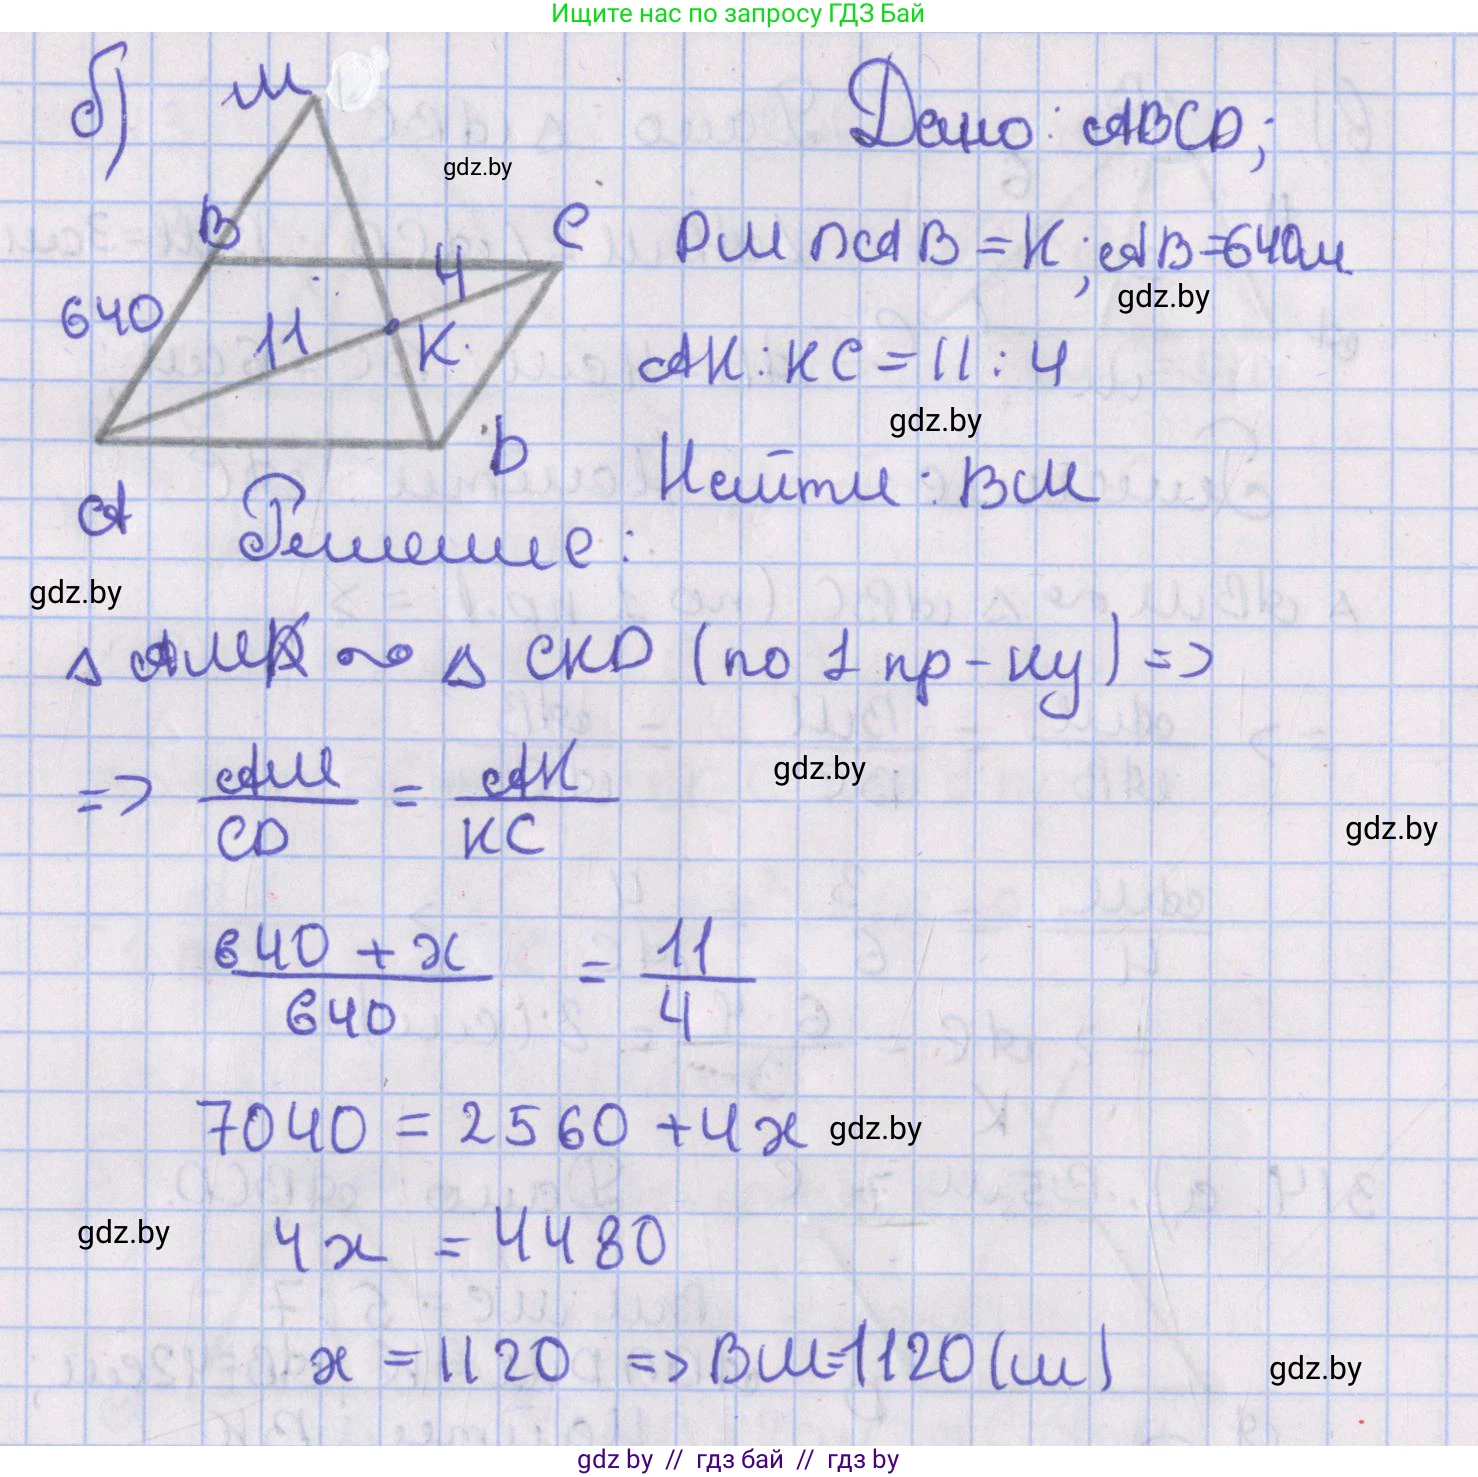 Ищите нас по запросу ГДЗ Бай
б) М
gdz.by
Дано: ABCD;
B
C
DM ∩ AB = K; AB = 640м
4
gdz.by
640
11
K
AK : KC = 11 : 4
gdz.by
D
Найти: BM
A
Решение:
gdz.by
△ AMK ∾ △ CKD (по 1 пр-ку) =>
=> AM/CD = AK/KC
gdz.by
gdz.by
640 + x / 640 = 11/4
7040 = 2560 + 4x
gdz.by
gdz.by
4x = 4480
x = 1120 => BM = 1120 (м)
gdz.by
gdz by // гдз бай // гдз by